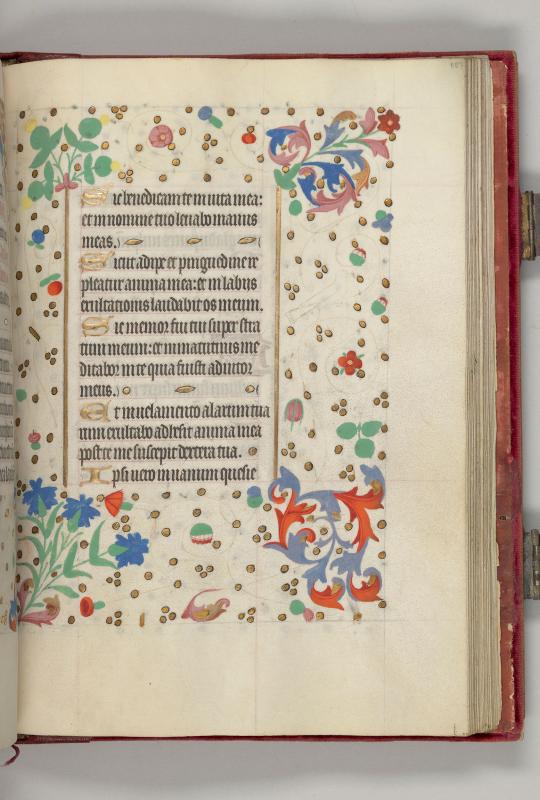 Sic benedicam te in vita mea:
et in nomine tuo levabo manus
meas.
Sicut adipe et pinguedine re
pleatur anima mea: et in labiis
exultationis laudabit os meum.
Si memor fui tui super stra
tum meum: et in matutinis me
ditabor in te quia fuisti adiutor
meus.
Et in velamento alarum tua
rum exultabo adhesit anima mea
post te me suscepit dextera tua.
Ipsi vero in vanum quesie